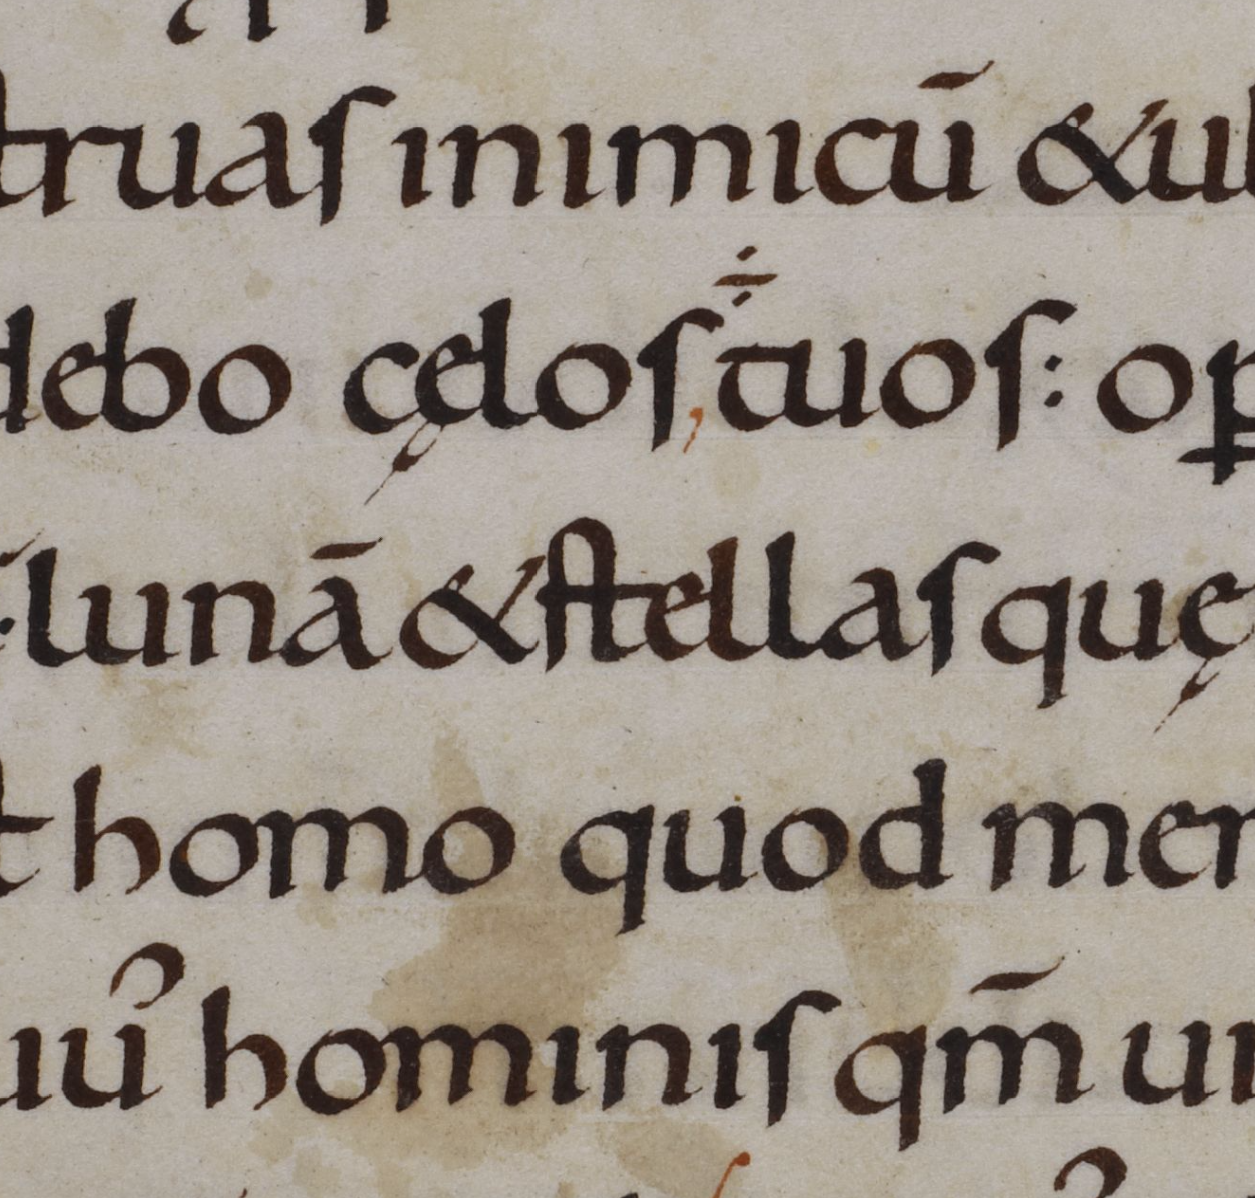 truas inimicū & ul
debo cęlos ÷ tuos: op
lunā & stellas quę
t homo quod mem
uu᾽ hominis qm̄ un